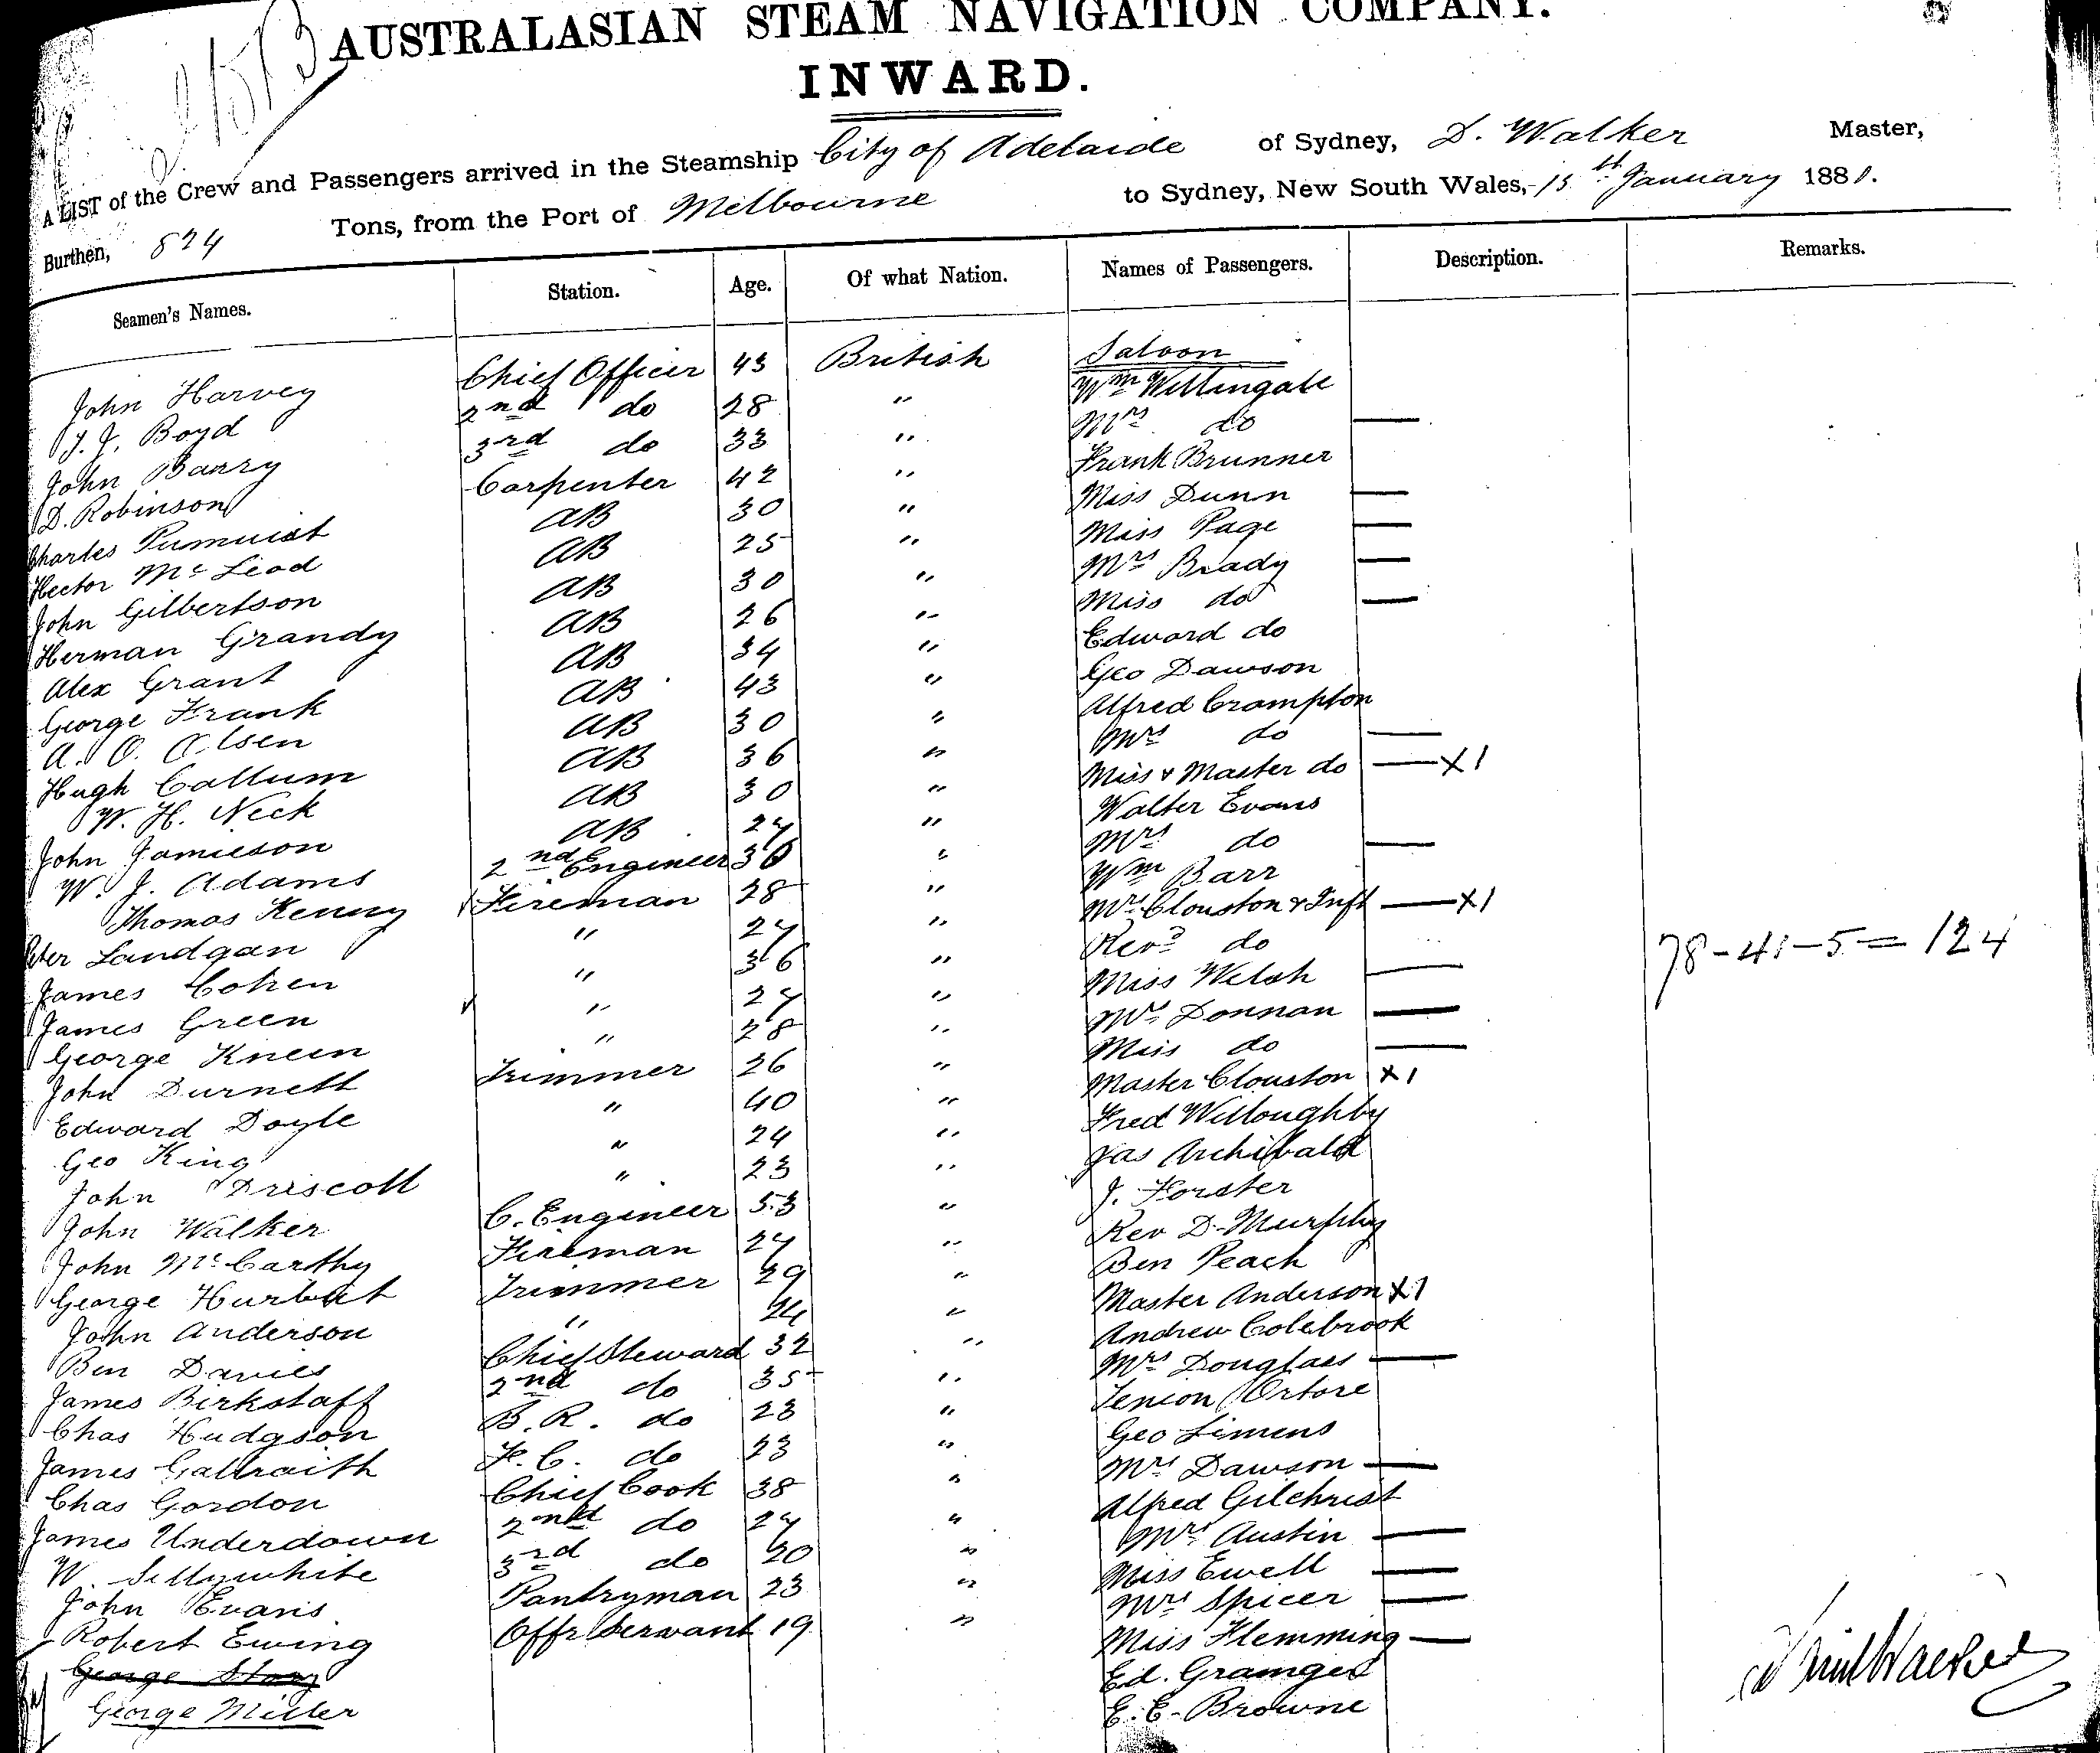 2573
AUSTRALASIAN STEAM NAVIGATION COMPANY.
INWARD.
A LIST of the Crew and Passengers arrived in the Steamship City of Adelaide of Sydney, D. Walker Master,
Burthen, 824 Tons, from the Port of Melbourne to Sydney, New South Wales, 15th January 1881.
Seamen's Names. Station. Age. Of what Nation. Names of Passengers. Description. Remarks.
Saloon
John Harvey Chief Officer 43 British Wm Willingale
T. J. Boyd 2nd do 28 " Mrs do —
John Barry 3rd do 33 " Frank Brunner
D. Robinson Carpenter 42 " Miss Dunn —
Charles AB 30 " Miss Page —
Hector McLeod AB 25 " Mrs Brady —
John Gilbertson AB 30 " Miss do —
Herman Grandy AB 26 " Edward do
Alex Grant AB 34 " Geo Dawson
George Frank AB 43 " Alfred Crampton
A. O. Olsen AB 30 " Mrs do —
Hugh Callum AB 36 " Miss & Master do — X1
W. H. Neck AB 30 " Walter Evans
John Jamieson AB 27 " Mrs do —
W. J. Adams 2nd Engineer 30 " Wm Barr
Thomas Kenny Fireman 28 " Mrs Clouston & Inft — X1
Peter Landgan " 27 " Revd do
James Cohen " 36 " Miss Welsh —
James Green " 27 " Mrs Donnan —
George Kneen " 28 " Miss do —
John Durnett Trimmer 26 " Master Clouston X1
Edward Doyle " 40 " Fred Willoughby
Geo King " 24 " Jas Archibald
John Driscoll " 23 " J. Forster
John Walker C. Engineer 53 " Rev D. Murphy
John McCarthy Fireman 27 " Ben Peach
George Hurbert Trimmer 29 " Master Anderson X1
John Anderson " 24 " Andrew Colebrook
Ben Davies Chief Steward 32 " Mrs Douglass —
James Birkstaff 2nd do 35 " Tenion Ortore
Chas Hudgson B.R. do 23 " Geo Simens
James Galbraith F.C. do 23 " Mrs Dawson —
Chas Gordon Chief Cook 38 " Alfred Gilchrist
James Underdown 2nd do 27 " Mrs Austin —
W. Sillywhite 3rd do 20 " Miss Ewell —
John Evans Pantryman 23 " Mrs Spicer —
Robert Ewing Offr Servant 19 " Miss Flemming —
George Story Ed. Grainger
George Miller E. E. Browne
78-41-5=124
David Walker